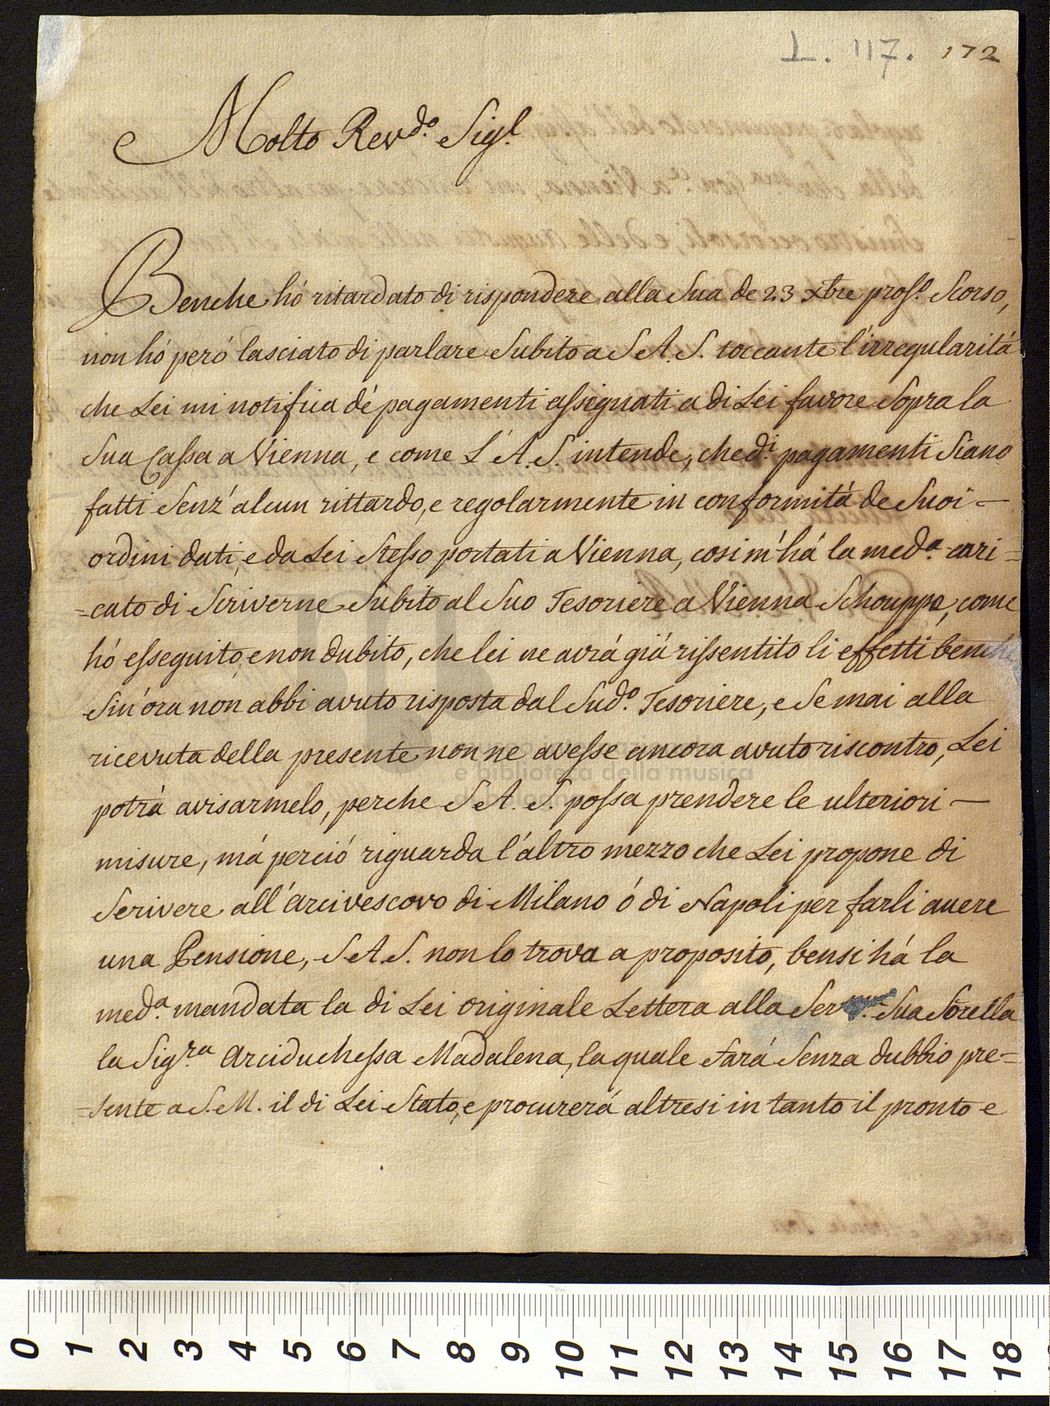 L. 117. 172
Molto Revdo. Sigl.
Benche hò ritardato di rispondere alla Sua de 23 xbre prosso. Scorso,
non hó peró lasciato di parlare Subito a S A. S. toccante l'irregularitá
che Lei mi notifica dè pagamenti assignati a di Lei favore Sopra la
Sua Cassa a Vienna, e come L'A.S. intende, che di. pagamenti Siano
fatti Senz'alcun rittardo, e regolarmente in conformità de Suoi -
ordini dati, e da Lei Stesso portati a Vienna, cosi m'há la meda. cari=
=cato di Scriverne Subito al Suo Tesoriere a Vienna Schouppe, come
hó esseguito, e non dubito, che lei ne avrá giá rissentito li effetti benche
Sin'ora non abbi avuto risposta dal Sudo. Tesoriere, e Se mai alla
ricevuta della presente non ne avesse ancora avuto riscontro, Lei
potrà avisarmelo, perche S A. S. possa prendere le ulteriori -
misure, má perció riguarda l'altro mezzo che Lei propone di
Scrivere all'Arcivescovo di Milano ó di Napoli per farli avere
una Pensione, S.A.S. non lo trova a proposito, bensi há la
meda. mandata la di Lei originale Lettera alla Serma. Sua Sorella
la Sigra Arciduchessa Madalena, la quale fará Senza dubbio pre=
=sente a S.M. il di Lei Stato, e procurerá altresi in tanto il pronto e
e biblioteca della musica
0 1 2 3 4 5 6 7 8 9 10 11 12 13 14 15 16 17 18